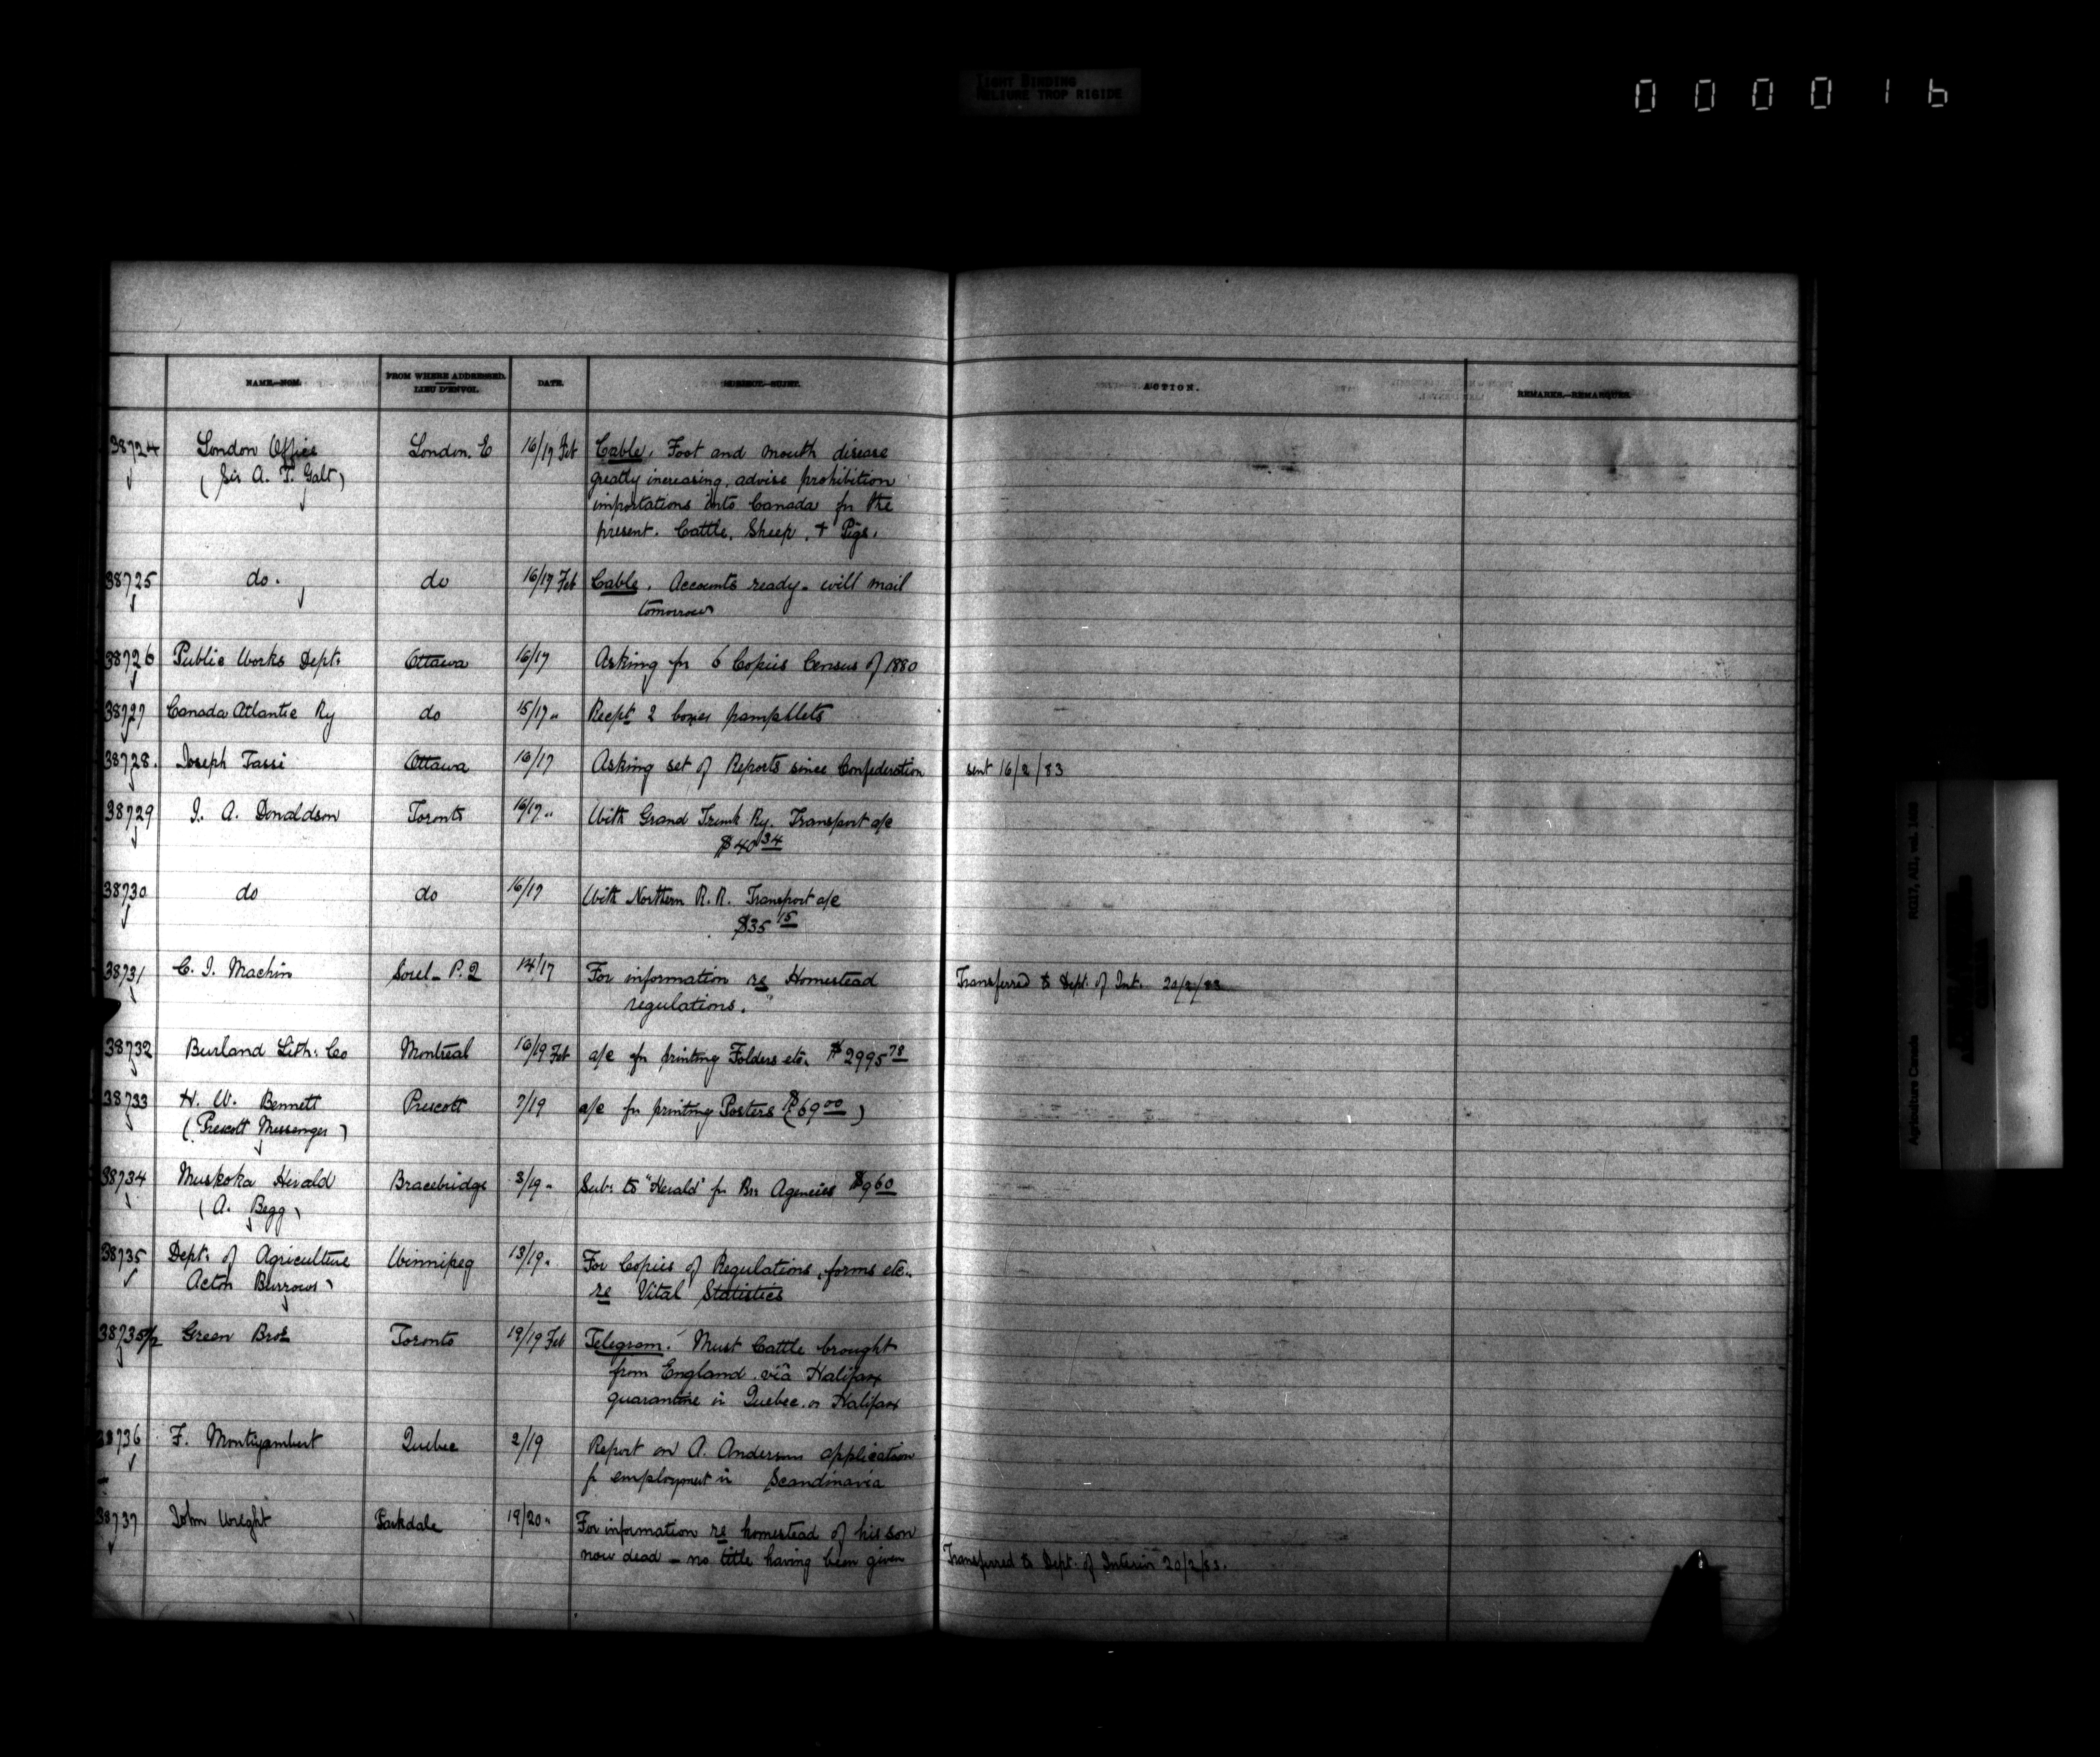 TIGHT BINDING
RELIURE TROP RIGIDE
000016
NAME.—NOM. FROM WHERE ADDRESSED. LIEU D'ENVOI. DATE. SUBJECT.—SUJET. ACTION. REMARKS.—REMARQUES.
38724 London Office London. E 16/17 Feb Cable. Foot and mouth disease
(Sir A. T. Galt) greatly increasing, advise prohibition
importations into Canada for the
present. Cattle, Sheep, & Pigs.
38725 do. do 16/17 Feb Cable. Accounts ready. will mail
tomorrow
38726 Public Works Dept. Ottawa 16/17 Asking for 6 Copies Census of 1880
38727 Canada Atlantic Ry do 15/17 " Recpt 2 boxes pamphlets
38728. Joseph Tassi Ottawa 16/17 Asking set of Reports since Confederation sent 16/2/83
38729 J. A. Donaldson Toronto 16/17 " With Grand Trunk Ry. Transport a/c
$40 34
38730 do do 16/17 With Northern R. R. Transport a/c
$35 15
38731 C. J. Machin Sorel - P.Q 14/17 For information re Homestead Transferred to Dept. of Int. 20/2/83
regulations.
38732 Burland Lith. Co Montreal 16/19 Feb a/c for printing Folders etc. $2995 78
38733 H. W. Bennett Prescott 7/19 a/c for printing Posters ($69 00)
(Prescott Messenger)
38734 Muskoka Herald Bracebridge 3/19 " Sub: to "Herald" for Br. Agencies $9 60
(A. Begg)
38735 Dept. of Agriculture Winnipeg 13/19 " For Copies of Regulations, forms etc.
Acton Burrows re Vital Statistics
38735 1/2 Green Bros Toronto 19/19 Feb Telegram. Must Cattle brought
from England via Halifax
quarantine in Quebec or Halifax
38736 F. Montizambert Quebec 2/19 Report on A. Anderson application
for employment in Scandinavia
38737 John Wright Parkdale 19/20 " For information re homestead of his son
now dead - no title having been given Transferred to Dept. of Interior 20/2/83.
Agriculture Canada RG17, AII, vol.